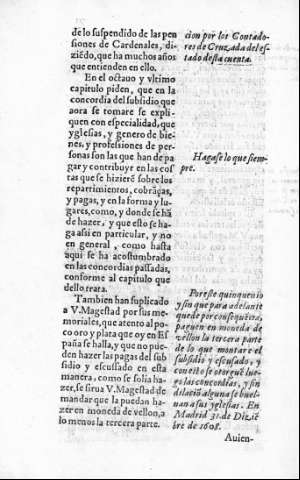 de lo suspendido de las pen
siones de Cardenales, di-
ziẽdo, que ha muchos años
que entienden en ello.
En el octauo y vltimo
capitulo piden, que en la
concordia del subsidio que
aora se tomare se expli-
quen con especialidad, que
yglesias, y genero de bie-
nes, y professiones de per-
sonas son las que han de pa
gar y contribuyr en las cos
tas que se hiziere sobre los
repartimientos, cobrãças,
y pagas, y en la forma y lu-
gares, como, y donde se hã
de hazer, y que esto se ha-
ga assi en particular, y no
en general, como hasta
aqui se ha acostumbrado
en las concordias passadas,
conforme al capitulo que
dello trata.
Tambien han suplicado
a V. Magestad por sus me-
moriales, que atento al po
co oro y plata que oy en Es
paña se halla, y que no pue-
den hazer las pagas del sub
sidio y escussado en esta
manera, como se solia ha-
zer, se sirua V. Magestad de
mandar que la puedan ha-
zer en moneda de vellon, a
lo menos la tercera parte.
cion por los Contado-
res de Cruzada del es-
tado desta cuenta.
Hagase lo que siem-
pre.
Por este quinquenio
y sin que para adelante
quede por consequẽcia,
paguen en moneda de
vellon la tercera parte
de lo que montare el
subsidio y escusado, y
con esto se otorgue lue-
go las concordias, y sin
dilaciõ alguna se buel-
uan a sus yglesias. En
Madrid 31. de Dizie-
bre de 1608.
Auien-